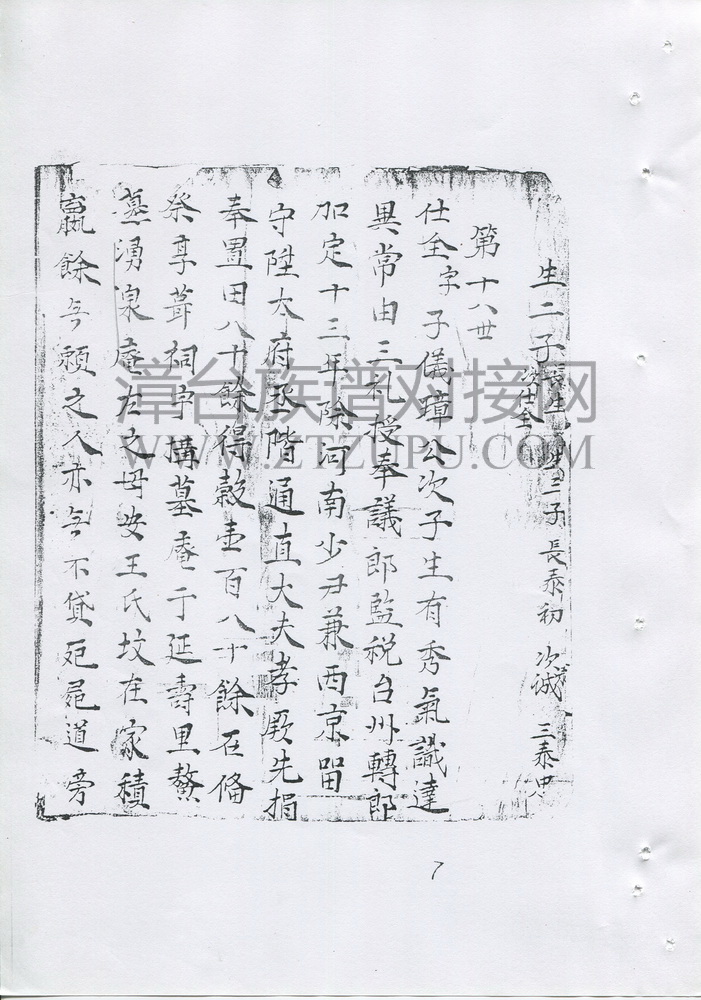 生二子 長生 生三子 長泰初 次誠 三泰忠
次仕全
第十八世
仕全字子儀璋公次子生有秀氣識達
異常由三礼授奉議郎監税台州轉郎
加定十三年除河南少尹兼西京留
守陞太府丞階通直大夫孝厥先捐
奉置田八十餘得穀壷百八十餘石偹
祭享葺祠宇構墓庵于延壽里鰲
墓湧泉庵左之母安王氏坟在家積
贏餘与頼之人亦与不貸死屍道旁
漳台族谱对接网
WWW.ZTZUPU.COM
7